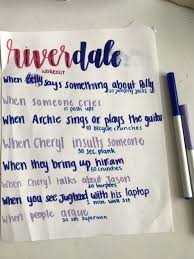 riverdale
WORKOUT
When Betty says something about Polly
20 jumping jacks
When someone cries
10 push ups
When Archie sings or plays the guitar
10 bicycle crunches
When Cheryl insults someone
30 sec. plank
When they bring up hiram
20 crunches
When Cheryl talks about Jason
10 burpees
When you see Jughead with his laptop
1 min. wall sit
When people argue
30 sec superman